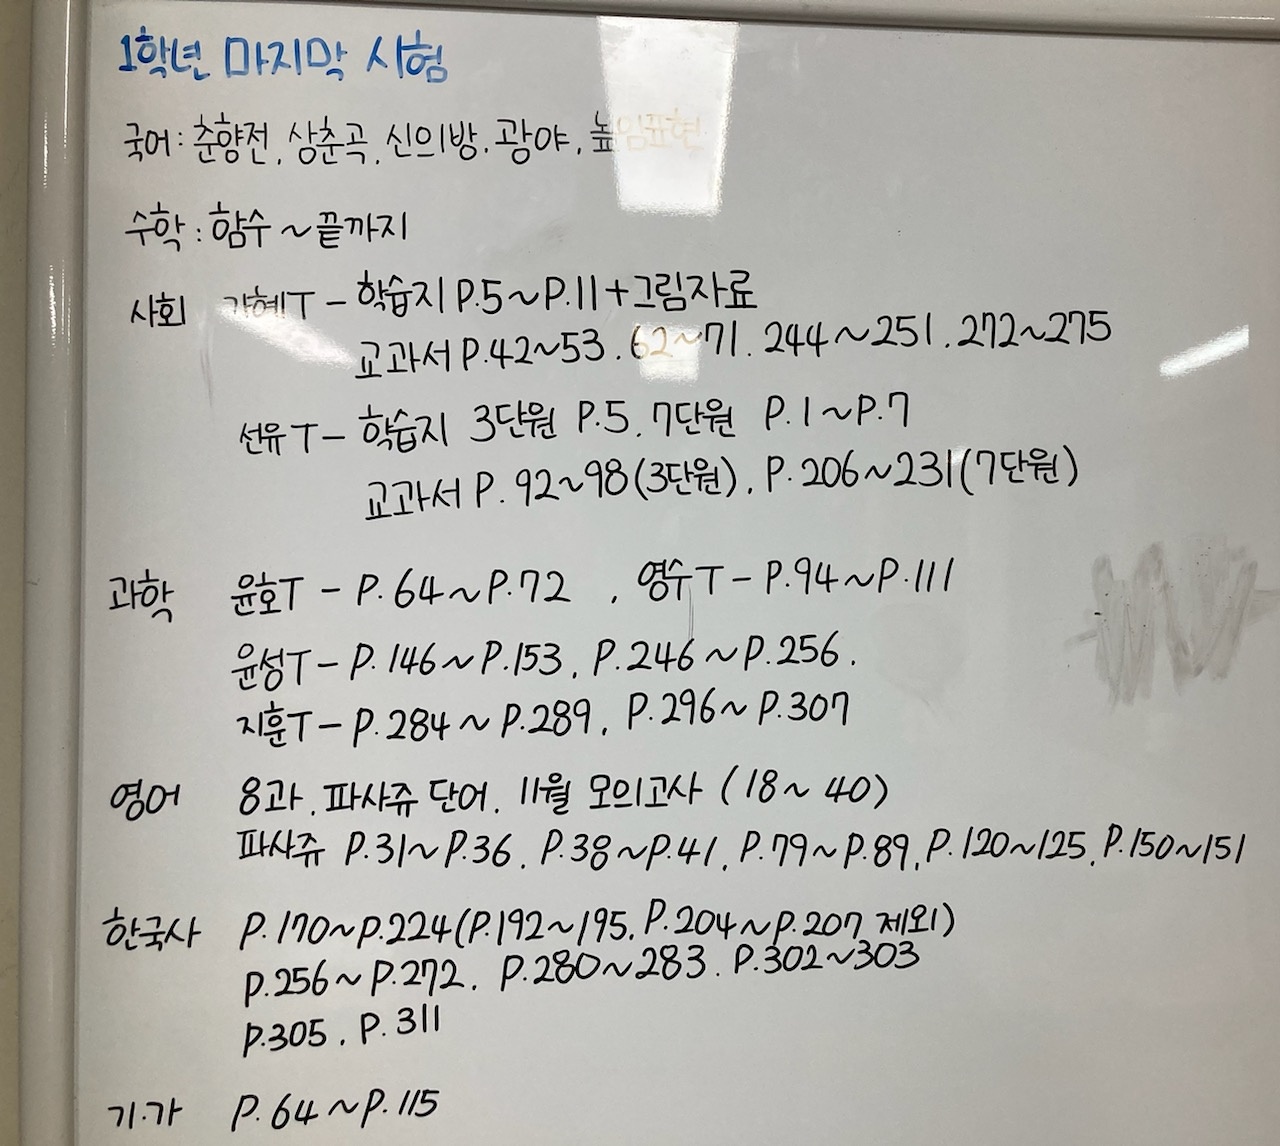 1학년 마지막 시험
국어: 춘향전, 상춘곡, 신의방, 광야, 높임표현
수학 : 함수 ~ 끝까지
사회 가혜T - 학습지 P.5~P.11 + 그림자료
교과서 P.42~53, 62~71, 244~251, 272~275
선유T - 학습지 3단원 P.5, 7단원 P.1~P.7
교과서 P. 92~98(3단원), P.206~231(7단원)
과학 윤호T - P.64~P.72 , 영수T - P.94~P.111
윤성T - P.146~P.153, P.246~P.256.
지훈T - P.284~P.289, P.296~P.307
영어 8과, 파사쥬 단어, 11월 모의고사 (18~40)
파사쥬 P.31~P.36, P.38~P.41, P.79~P.89, P.120~125, P.150~151
한국사 P.170~P.224(P.192~195, P.204~P.207 제외)
P.256~P.272, P.280~283, P.302~303
P.305, P.311
기.가 P.64~P.115